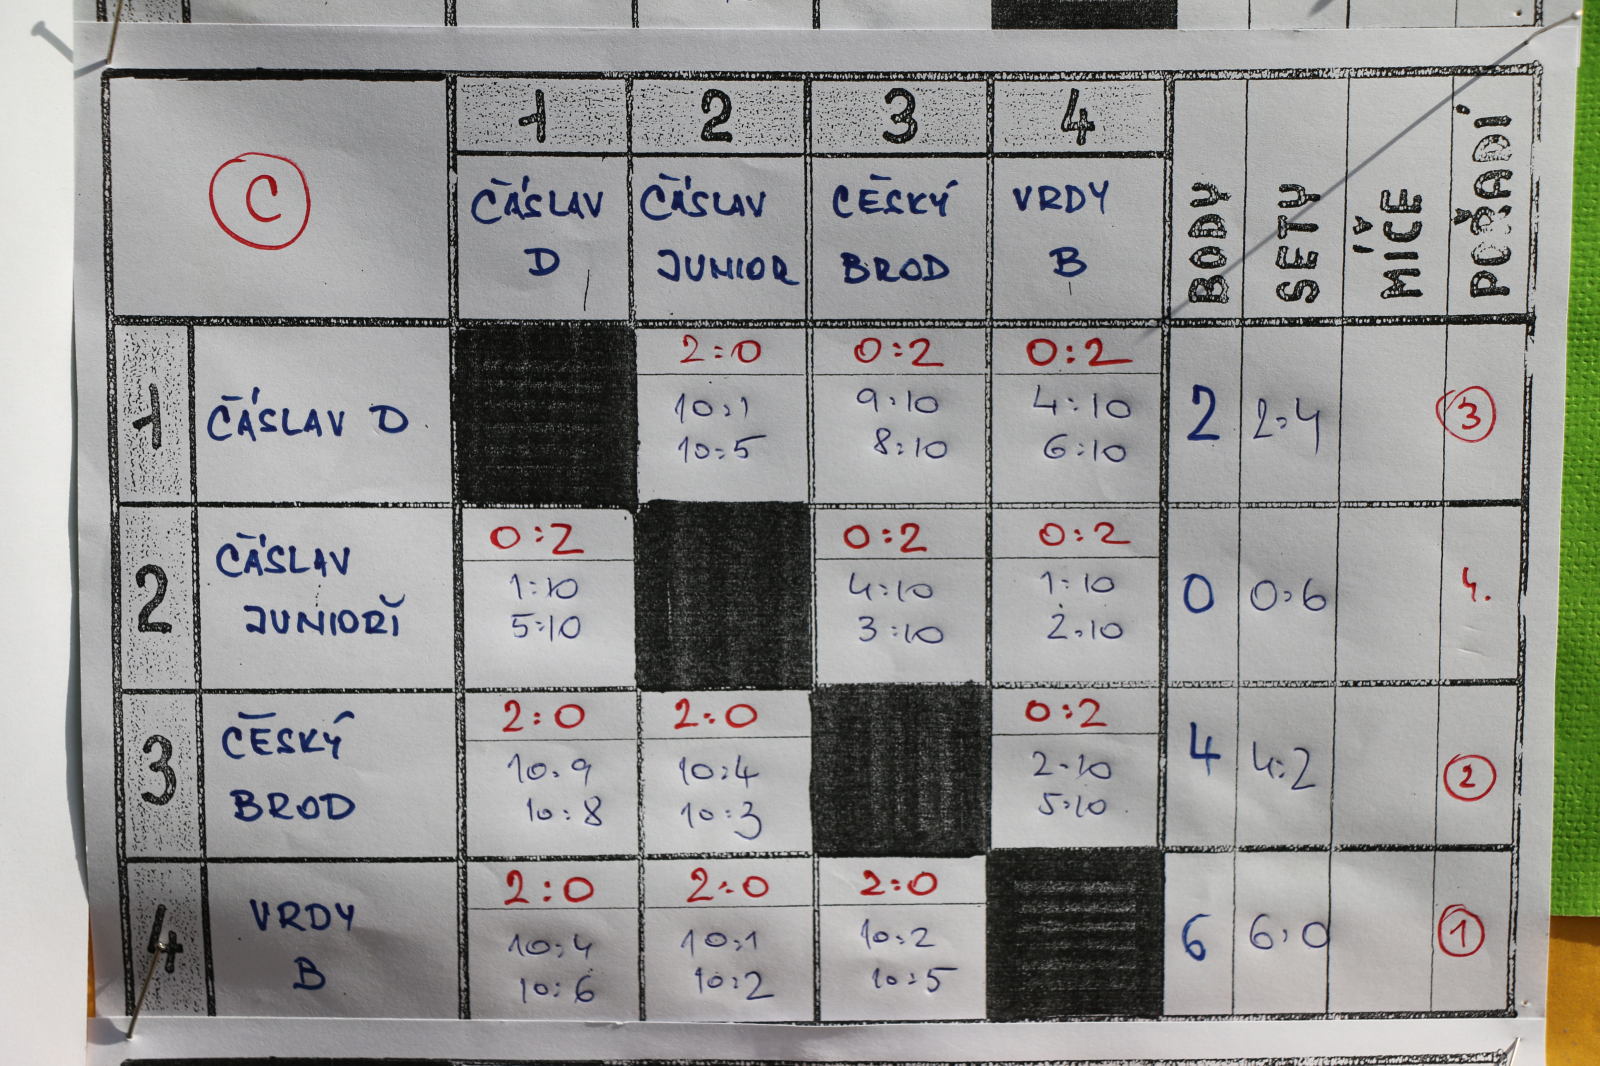 1 2 3 4
C
ČÁSLAV D
ČÁSLAV JUNIOR
ČESKÝ BROD
VRDY B
BODY
SETY
MÍČE
POŘADÍ
1 ČÁSLAV D 2:0 0:2 0:2 2 2:4 3
10:1 9:10 4:10
10:5 8:10 6:10
2 ČÁSLAV JUNIOŘI 0:2 0:2 0:2 0 0:6 4.
1:10 4:10 1:10
5:10 3:10 2:10
3 ČESKÝ BROD 2:0 2:0 0:2 4 4:2 2
10:9 10:4 2:10
10:8 10:3 5:10
4 VRDY B 2:0 2:0 2:0 6 6:0 1
10:4 10:1 10:2
10:6 10:2 10:5